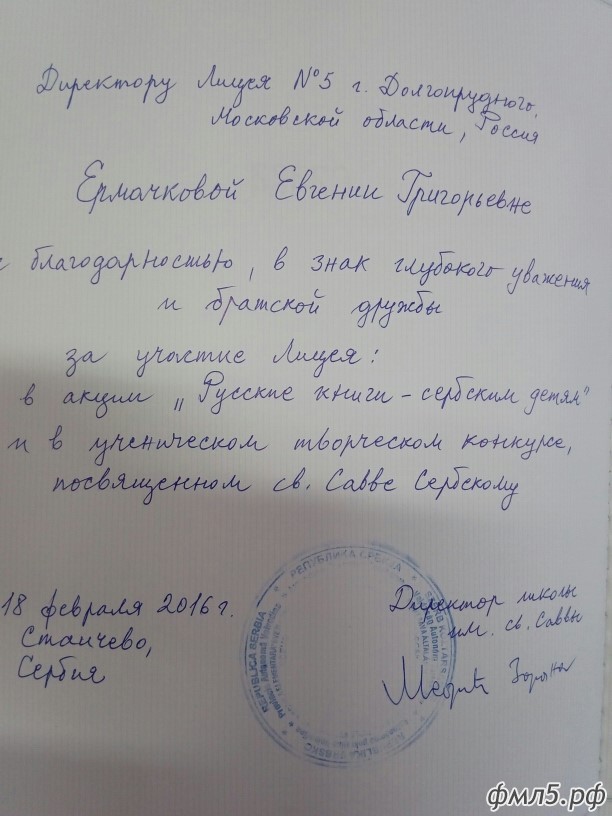 Директору Лицея №5 г. Долгопрудного,
Московской области, Россия
Ермачковой Евгении Григорьевне
с благодарностью, в знак глубокого уважения
и братской дружбы
за участие Лицея:
в акции „Русские книги - сербским детям"
и в ученическом творческом конкурсе,
посвященном св. Савве Сербскому
18 февраля 2016 г.
Стаичево,
Сербия
Директор школы
им. св. Саввы
РЕПУБЛИКА СРБИЈА
REPUBLICA SERBIA
фмл5.рф